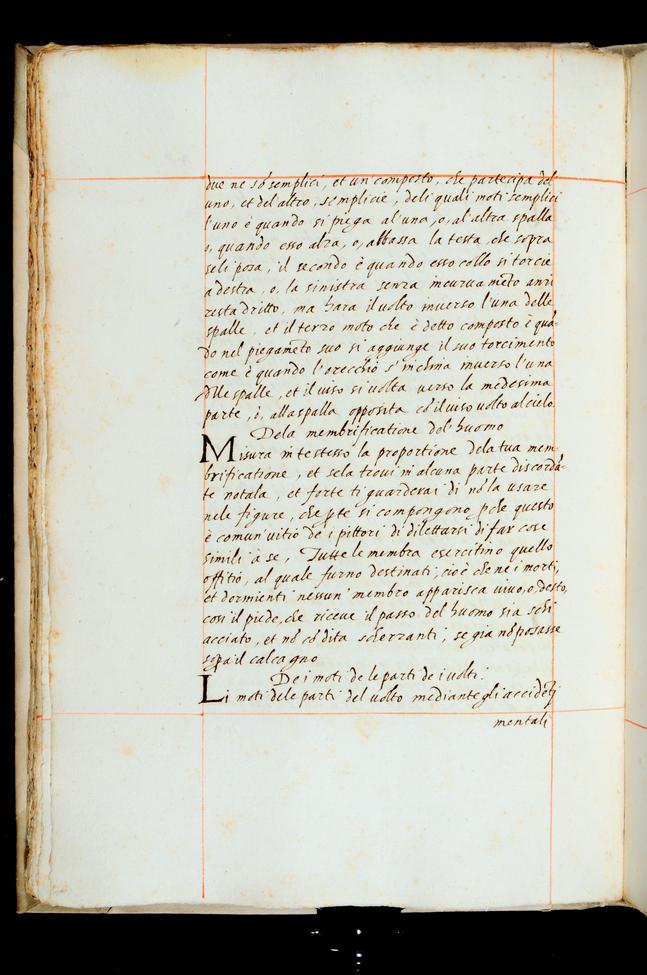 due ne sō semplici, et un composto, che partecipa del
uno, et del altro, semplicie, deli quali moti semplici
l'uno è quando si piega al una, o, al altra spalla
o, quando esso alza, o, abbassa la testa, che sopra
seli posa, il secondo è quando esso collo si torcie
a destra, o, la sinistra senza incuruamēto anzi
resta dritto, ma hara il uolto inverso l'una delle
spalle, et il terzo moto che è detto composto è quā-
do nel piegamēto suo si aggiunge il suo torcimento
come è quando l'orecchio s'inchina inverso l'una
d'lle spalle, et il uiso si uolta verso la medesima
parte, ò, alla spalla opposita cō il uiso uolto al cielo.
Dela membrificatione del huomo
Misura in te stesso la proportione dela tua mem-
brificatione, et se la troui in alcuna parte discordā-
te notala, et forte ti guarderai di nō la usare
nele figure, che p te si compongono, pche questo
è comun' uitiō de i pittori di dilettarsi di far cose
simili à se, Tutte le membra esercitino quello
offitiō, al quale furno destinati, cioè che ne i morti,
et dormienti nessun' membro apparisca uiuo, o, desto,
cosi il piede, che riceue il passo del huomo sia schi
acciato, et nō cō dita scherzanti, se gia nō posasse
sopa il calcagno
De i moti de le parti de i uolti.
Li moti dele parti del uolto mediante gli accidēti
mentali